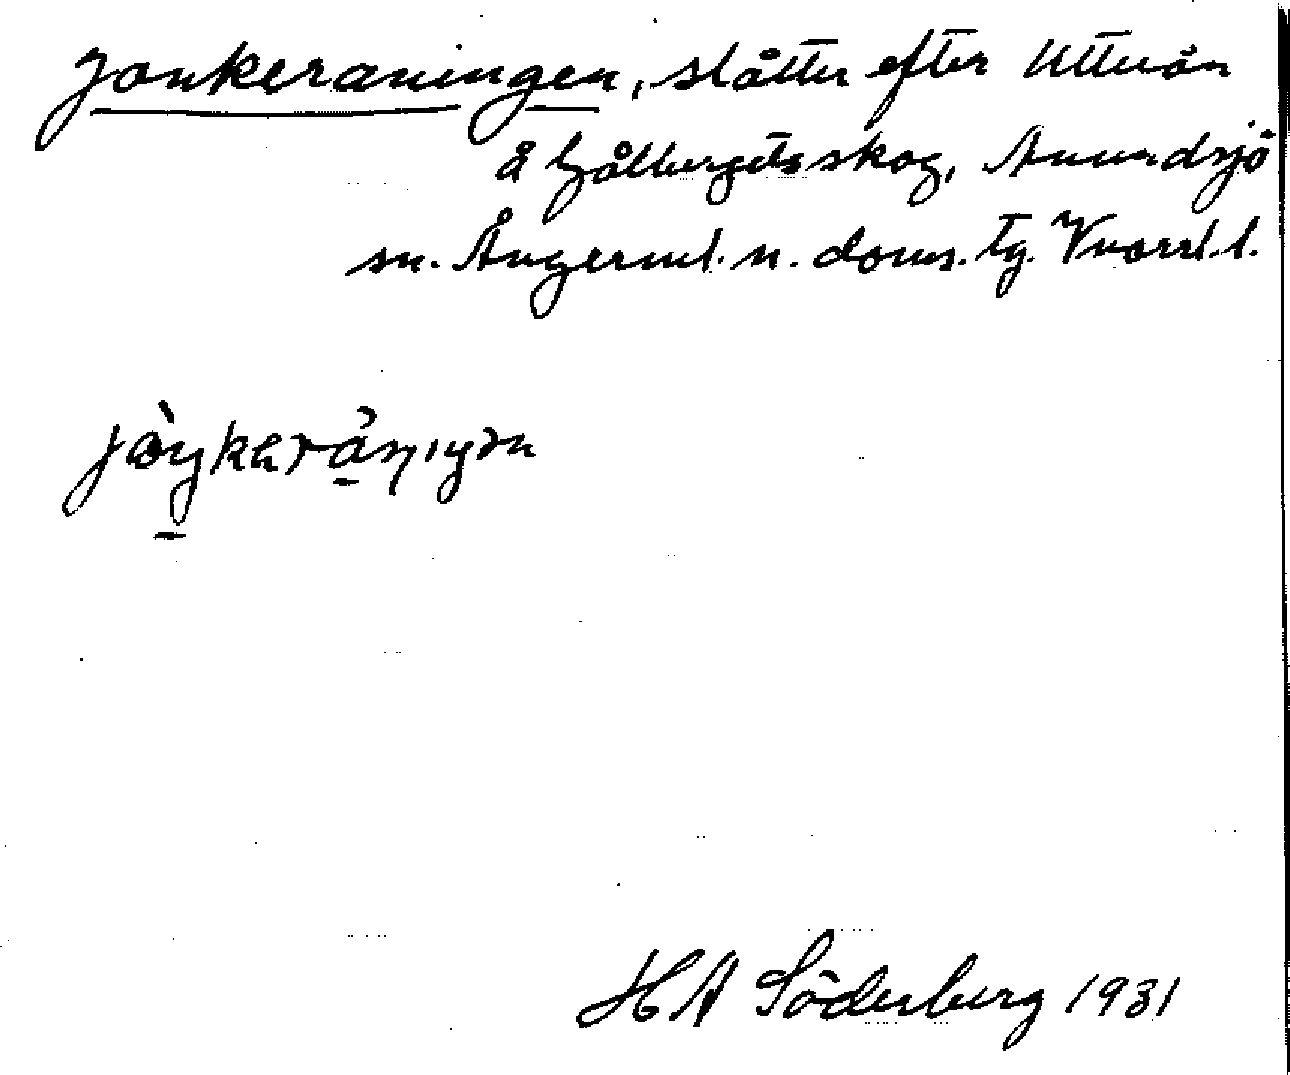 Jonkeraningen, slåtter efter Utterån
å Gålbergets skog, Anundsjö
sn. Ångerml. n. doms. tg. Västernl. l.
HA Söderberg 1931